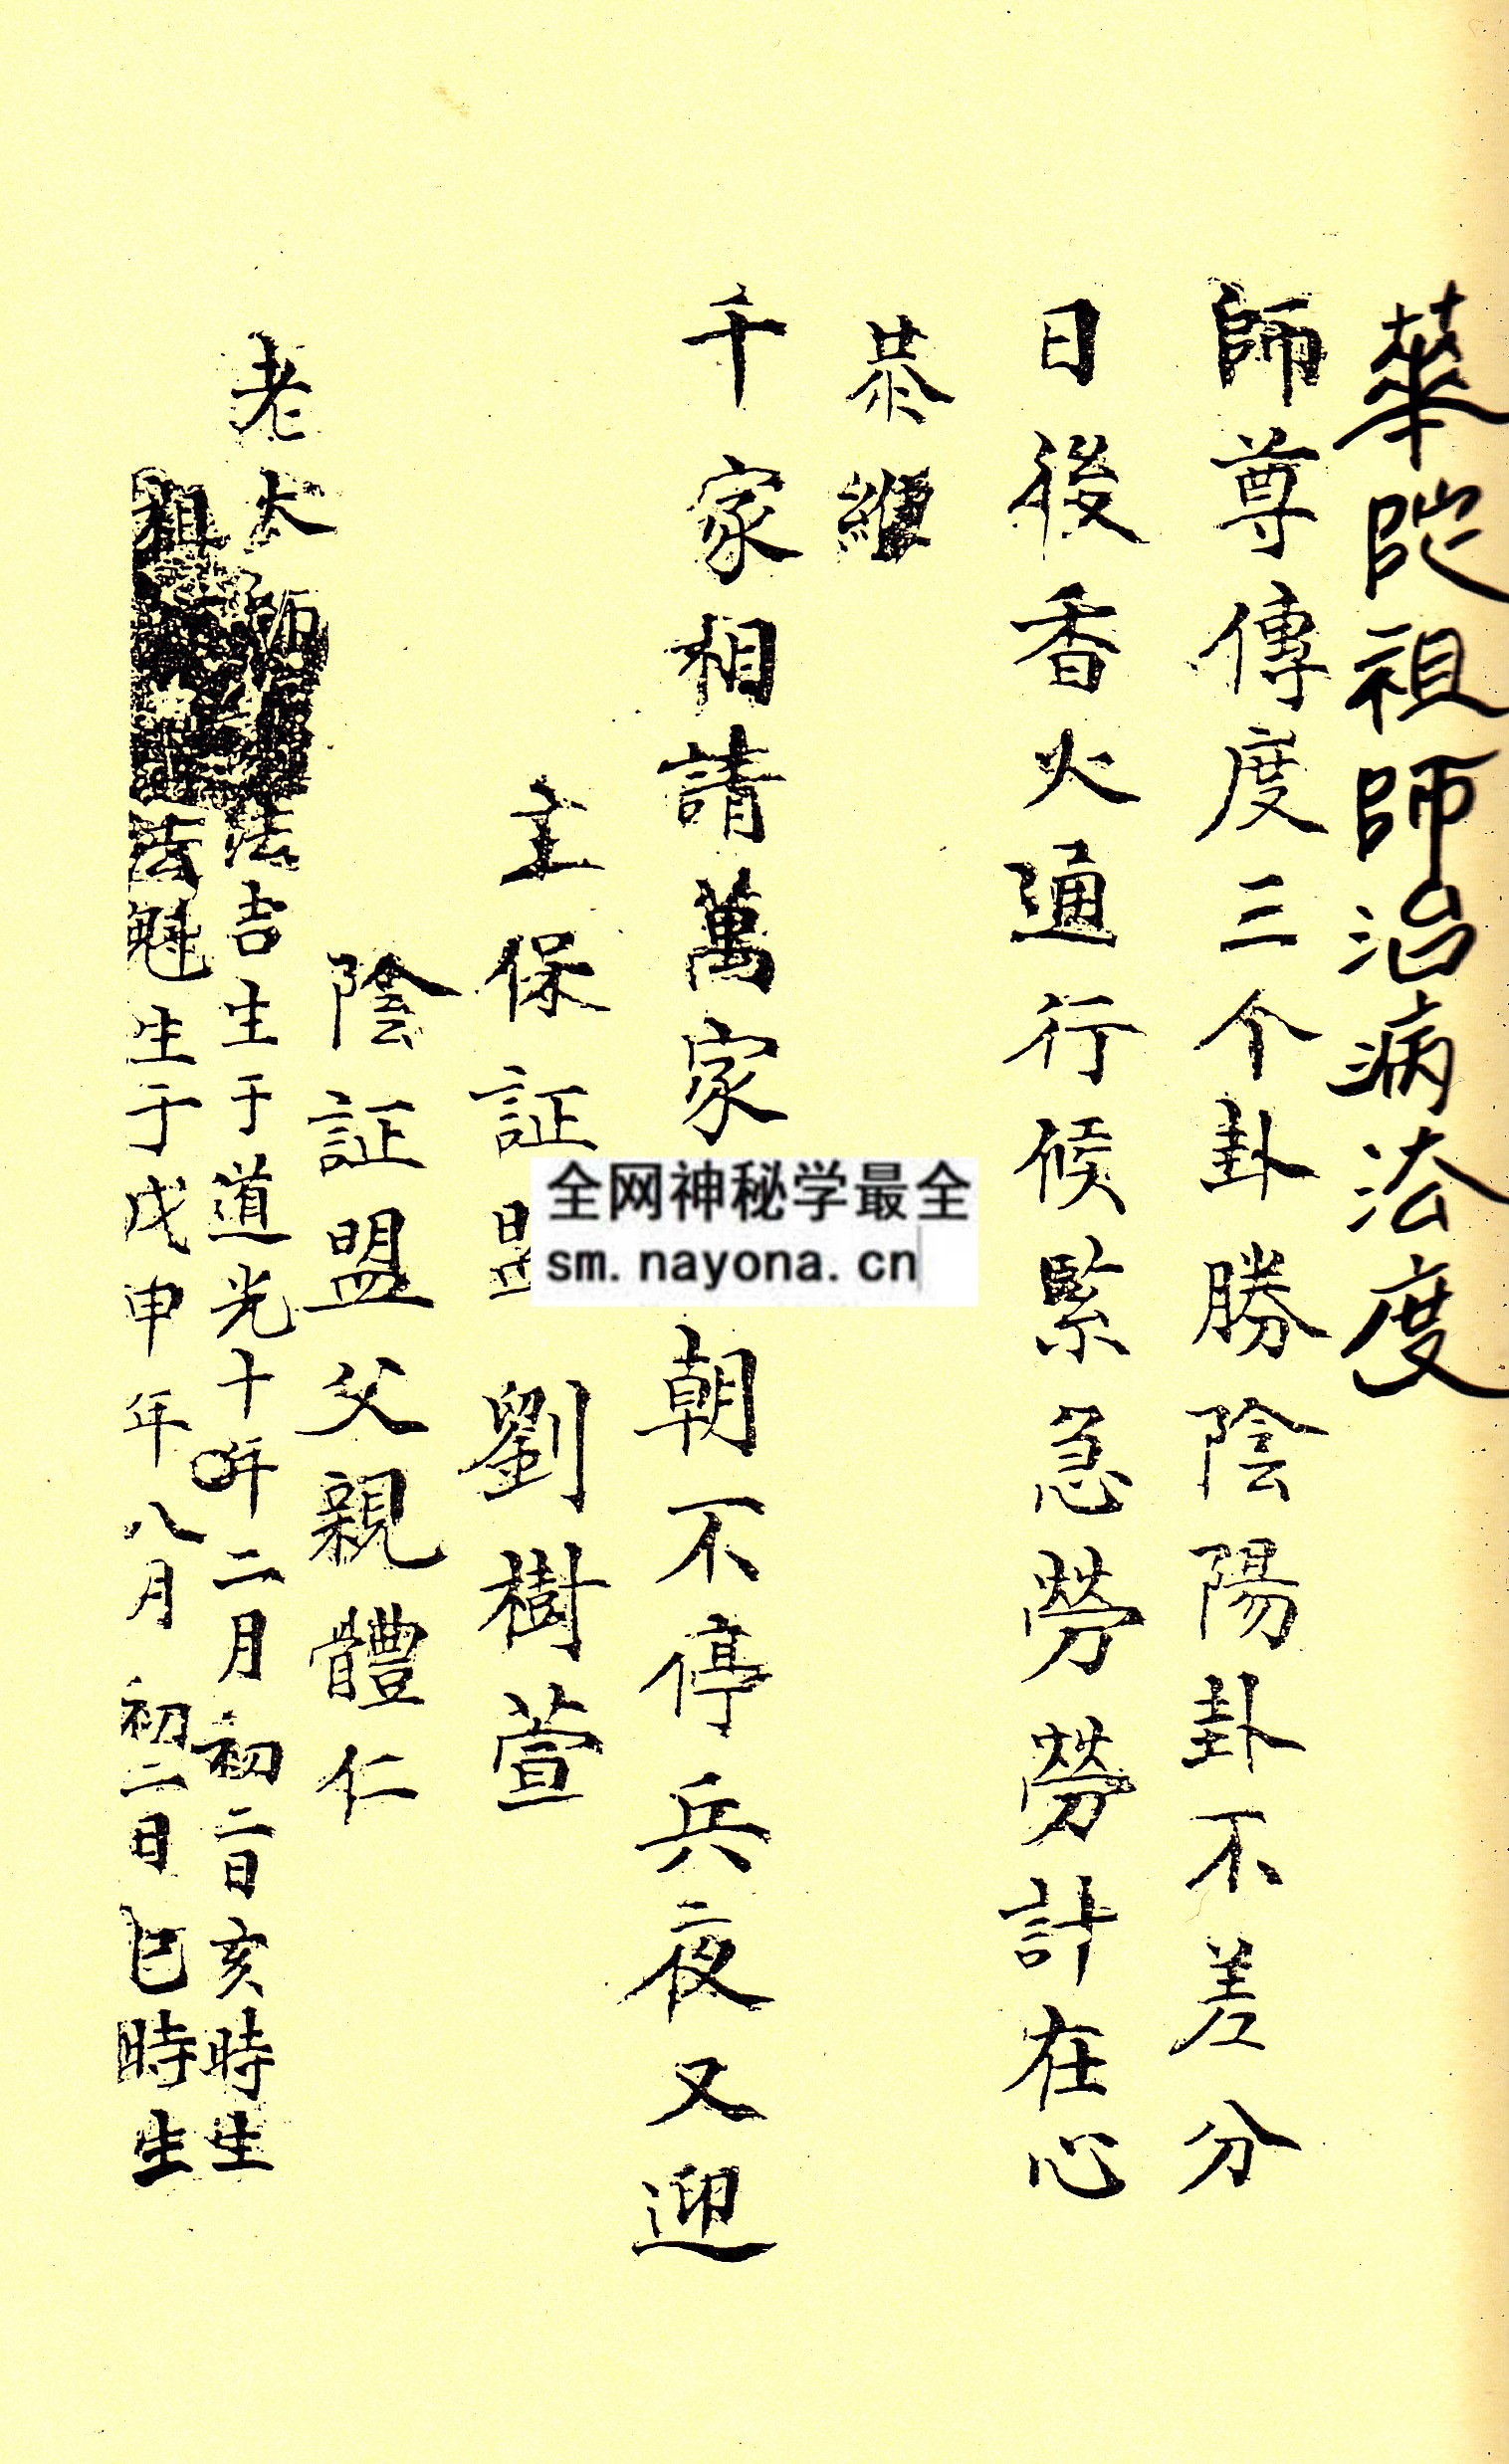 華陀祖師治病法度
師尊傳度三个卦勝陰陽卦不差分
日後香火通行候緊急勞勞計在心
恭維
千家相請萬家朝不停兵夜又迎
主保証盟劉樹萱
陰証盟父親體仁
老太師法吉生于道光十年二月初二日亥時生
祖法魁生于戊申年八月初二日巳時生
全网神秘学最全
sm.nayona.cn